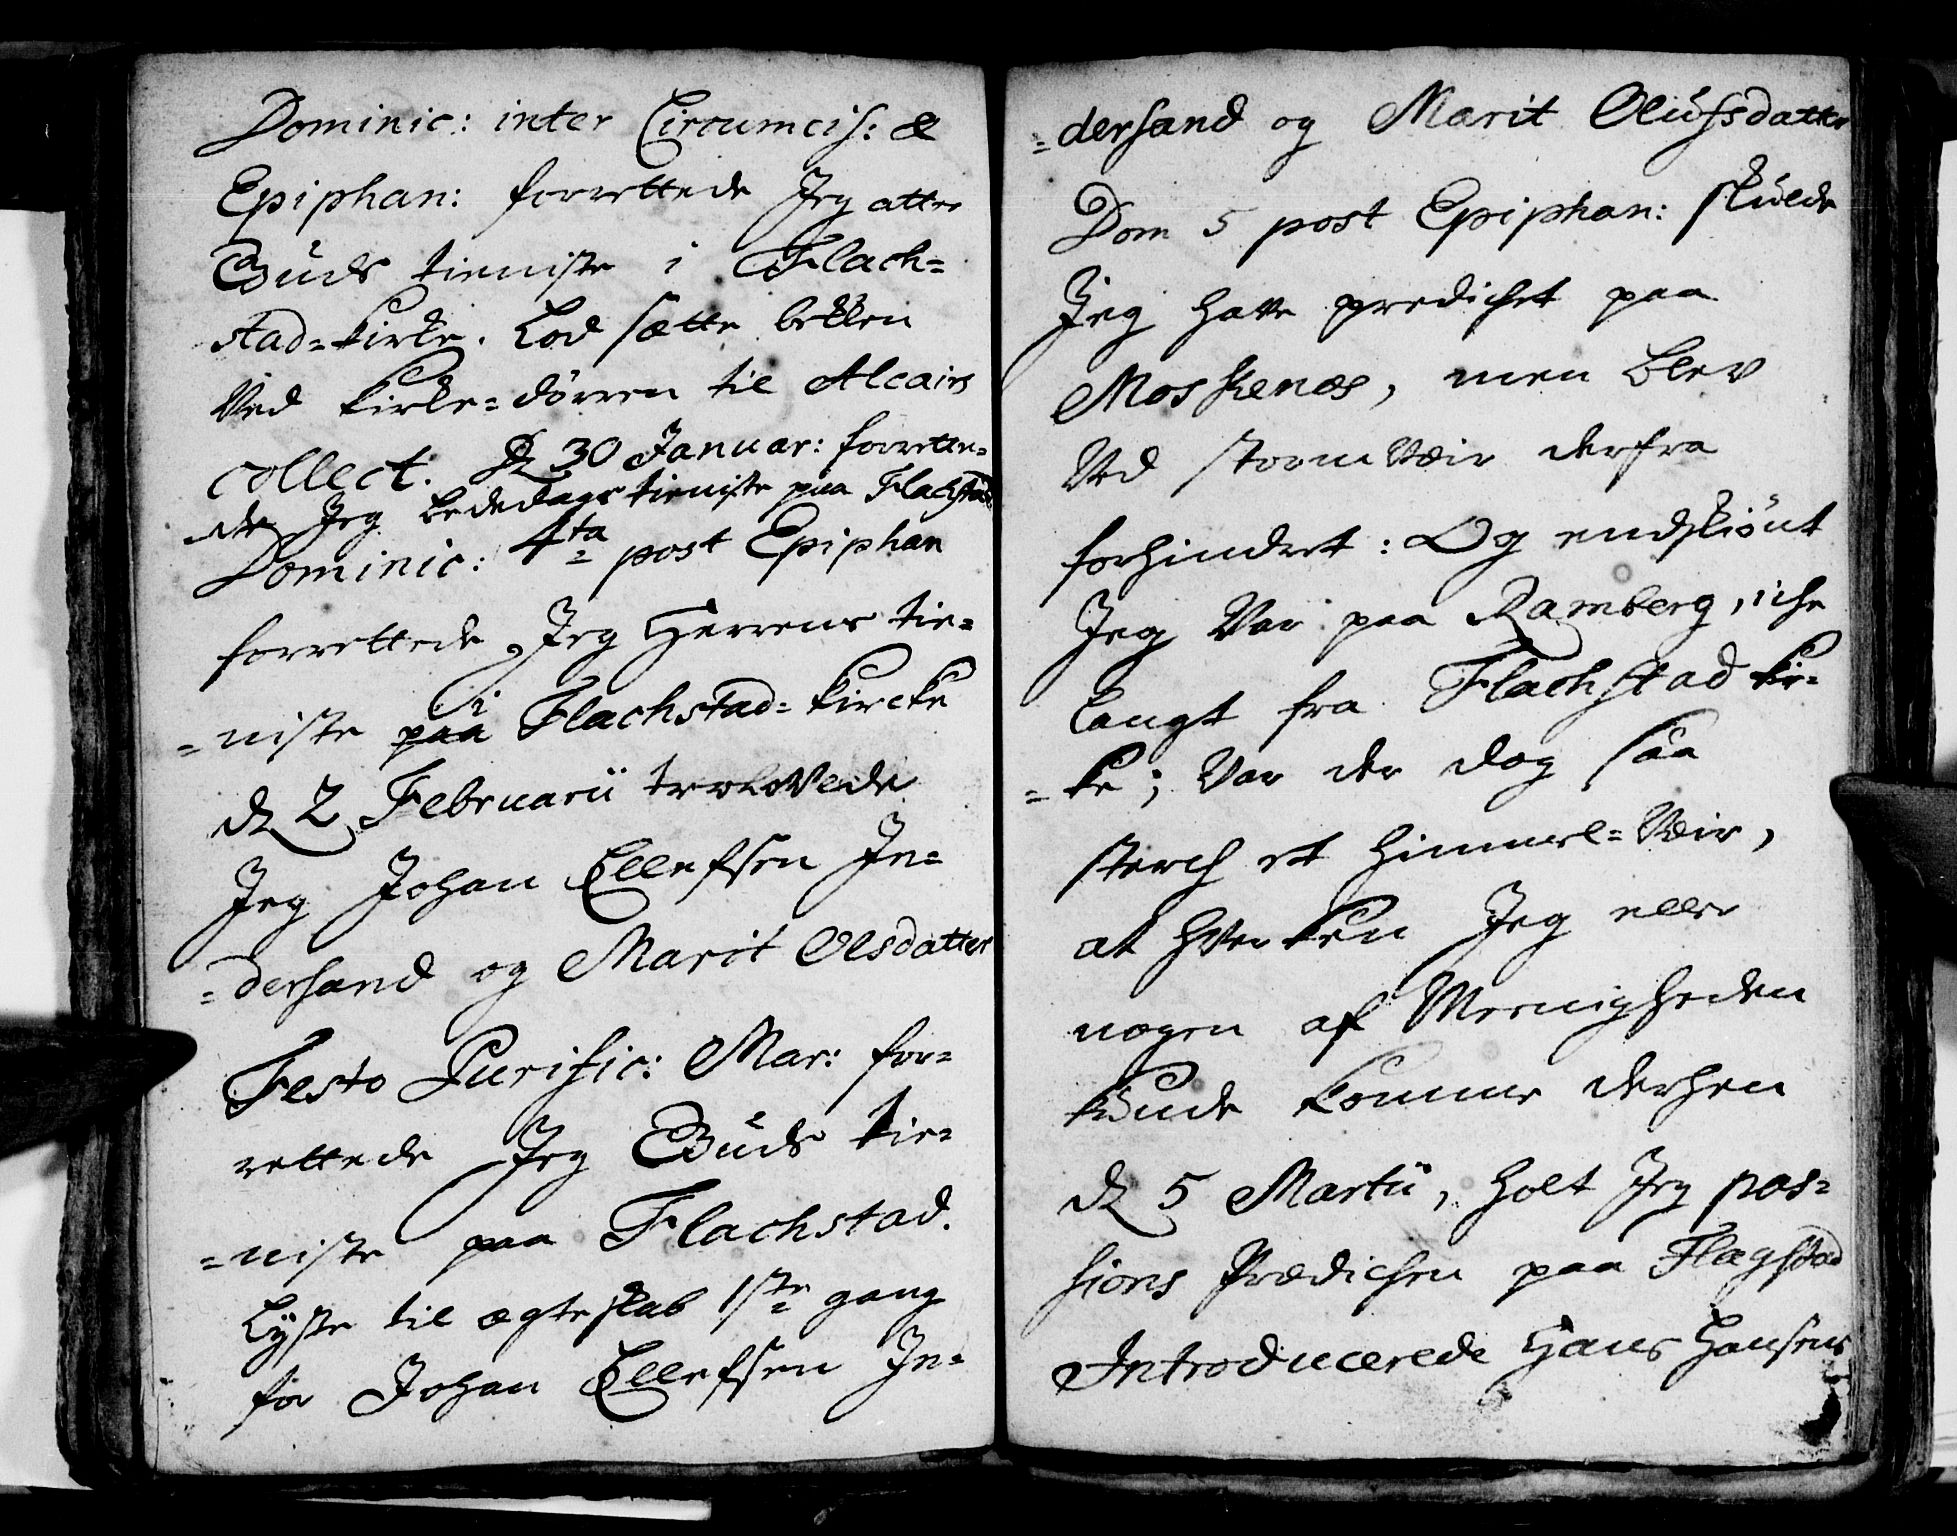 Dominic: inter Circumcis: &
Epiphan: forrettede Jeg atter
Guds tieniste i Flach=
stad=kirke. Lod sætte bekken
Ved kirke=dørren til Alcairs
collect. D 30 Januar: forrette=
de Jeg bededags tieniste paa Flachstad
Dominic: 4ta post Epiphan
forrettede Jeg Herrens tie=
=niste i paa Flachstad=kircke
d 2 Februarii trolovede
Jeg Johan Ellefsen In=
=dersand og Marit Olsdatter
Festo Purific: Mar: for=
rettede Jeg Guds tie=
=niste paa Flachstad.
Lyste til ægteskab 1ste gang
for Johan Ellefsen In=
=dersand og Marit Olufsdatter
Dom 5 post Epiphan: skulde
Jeg have predichet paa
Moskenæs, men blev
Ved stormVæir derfra
forhindret: Og endskiönt
Jeg Var paa Ramberg, iche
langt fra Flachstad kir=
=ke; Var der dog saa
sterch et himmel=Væir,
at hverken Jeg eller
nogen af Meenigheden
kunde komme derhen
d 5 Martii, holt Jeg pas=
sions Prædichen paa Flagstad
Introducerede Hans Hansens